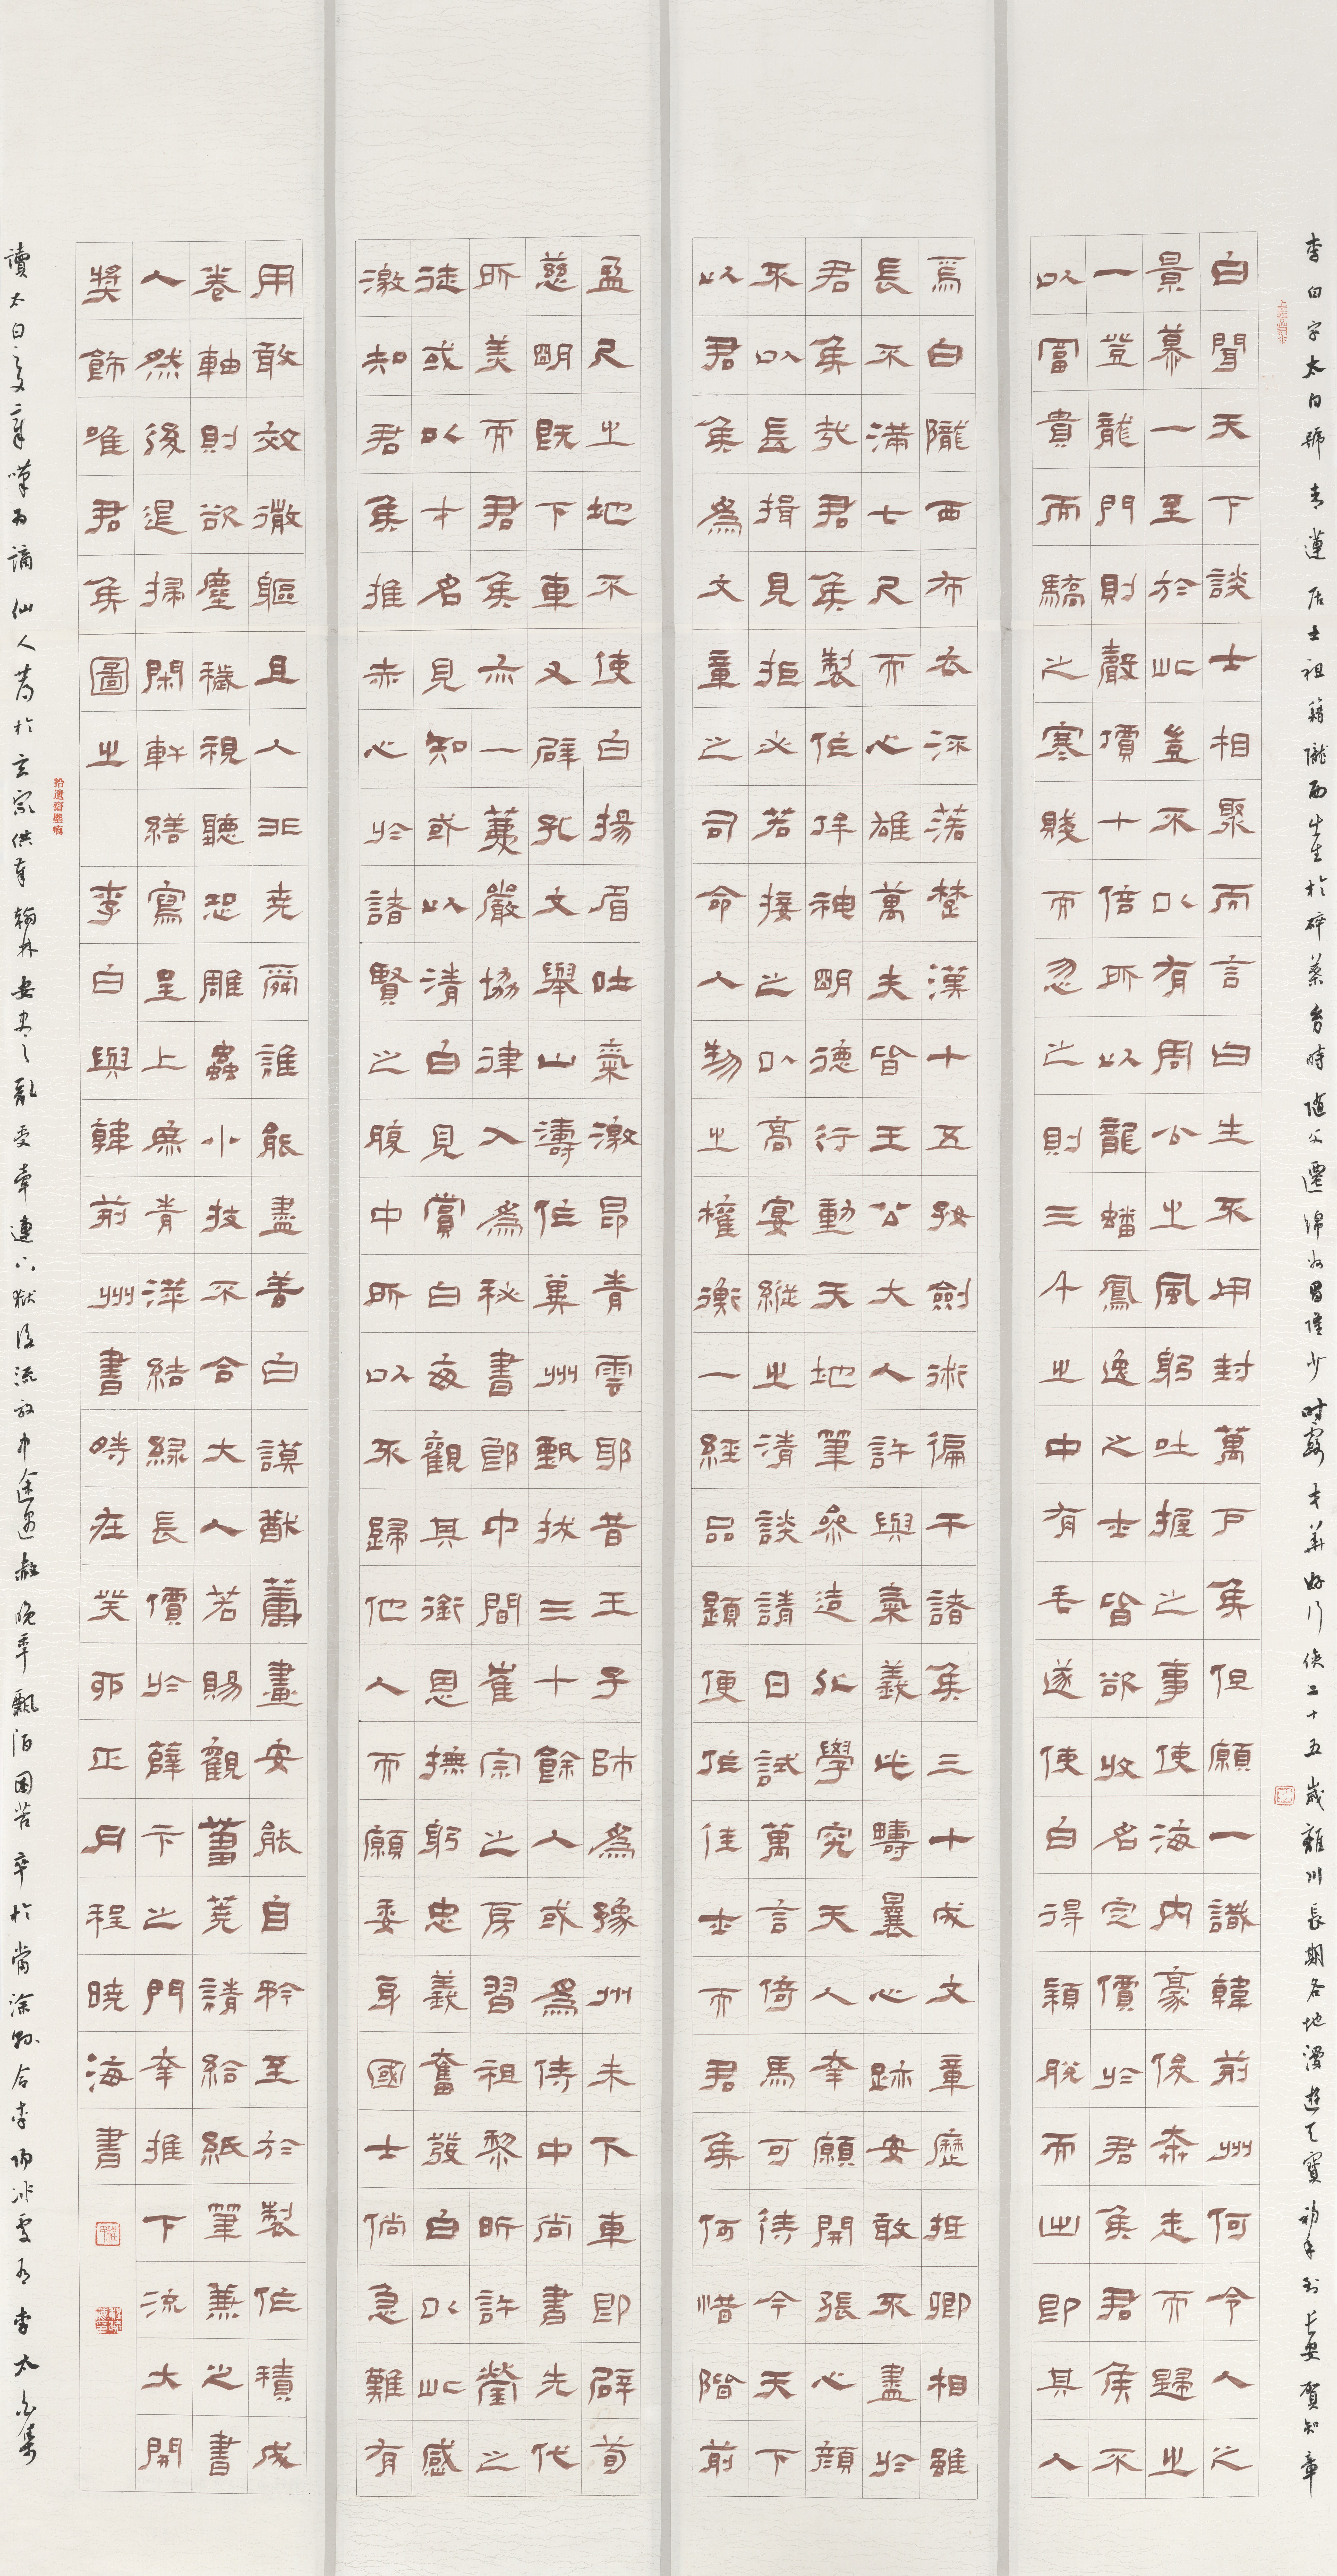 李白字太白號青蓮居士祖籍隴西出生於碎葉幼時隨父遷綿州昌隆少時露才華好行俠二十五歲離川長期各地漫遊天寶初年到長安賀知章
白聞天下談士相聚而言曰生不用封萬戶侯但願一識韓荊州何令人之
景慕一至於此豈不以有周公之風躬吐握之事使海內豪俊奔走而歸之
一登龍門則聲價十倍所以龍蟠鳳逸之士皆欲收名定價於君侯君侯不
以富貴而驕之寒賤而忽之則三千之中有毛遂使白得穎脫而出即其人
焉白隴西布衣流落楚漢十五好劍術徧干諸侯三十成文章歷抵卿相雖
長不滿七尺而心雄萬夫皆王公大人許與氣義此疇曩心跡安敢不盡於
君侯哉君侯製作侔神明德行動天地筆參造化學究天人幸願開張心顏
不以長揖見拒必若接之以高宴縱之清談請日試萬言倚馬可待今天下
以君侯為文章之司命人物之權衡一經品題便作佳士而君侯何惜階前
盈尺之地不使白揚眉吐氣激昂青雲耶昔王子師為豫州未下車即辟荀
慈明既下車又辟孔文舉山濤作冀州甄拔三十餘人或為侍中尚書先代
所美而君侯亦一薦嚴協律入為秘書郎中間崔宗之房習祖黎昕許瑩之
徒或以才名見知或以清白見賞白每觀其銜恩撫躬忠義奮發白以此感
激知君侯推赤心於諸賢之腹中所以不歸他人而願委身國士倘急難有
用敢效微軀且人非堯舜誰能盡善白謨猷籌畫安能自矜至於製作積成
卷軸則欲塵穢視聽恐雕蟲小技不合大人若賜觀芻蕘請給紙筆兼之書
人然後退掃閑軒繕寫呈上庶青萍結綠長價於薛卞之門幸推下流大開
獎飾唯君侯圖之 李白與韓荊州書時在癸卯正月程曉海書
拾遺齋墨痕
讀太白文章嘆為謫仙人薦於玄宗供奉翰林安史之亂受牽連入獄後流放中途遇赦晚年飄泊困苦卒於當塗縣令李陽冰處有李太白集